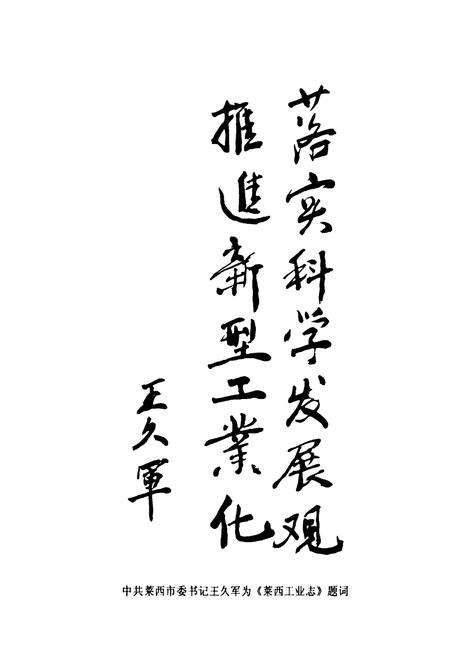 落实科学发展观
推進新型工業化
王久軍
中共莱西市委书记王久军为《莱西工业志》题词